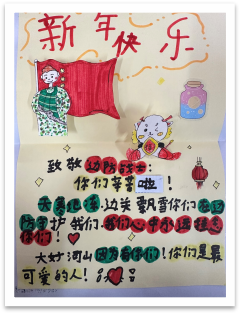 新年快乐
致敬边防战士：
你们辛苦啦！
边关飘雪你们在边
防守护我们，我们心中永远挂念
你们！
大好河山因为有你们！你们是最
可爱的人！